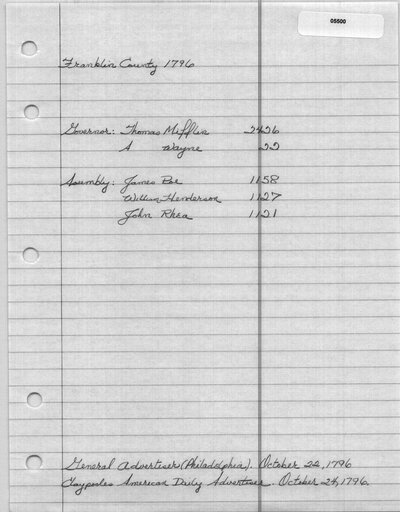 05500
Franklin County 1796
Governor: Thomas Mifflin 2426
A Wayne 22
Assembly: James Poe 1158
William Henderson 1127
John Rhea 1121
General Advertiser (Philadelphia). October 22, 1796
Claypooles American Daily Advertiser. October 24, 1796.